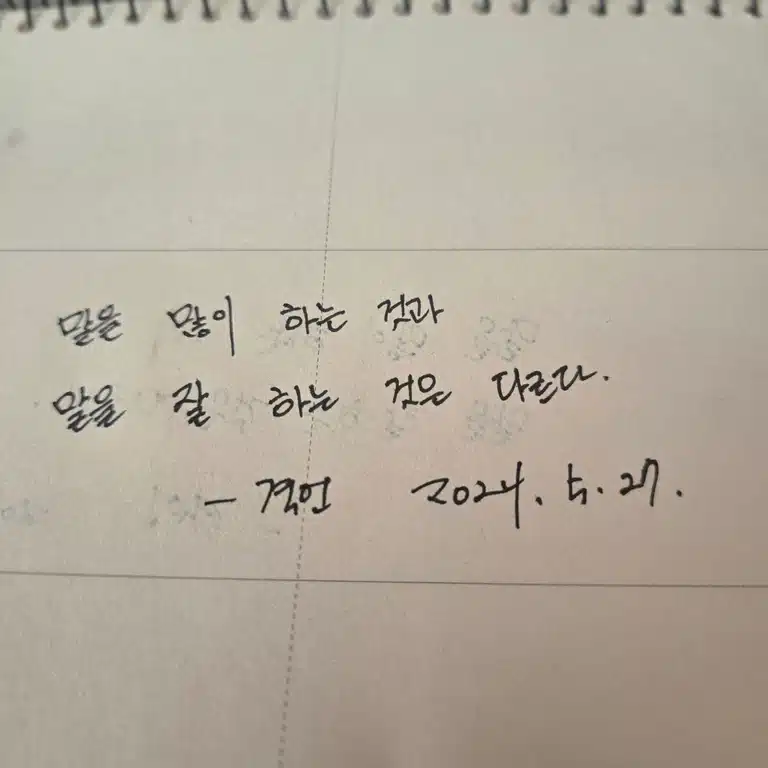 말을 많이 하는 것과
말을 잘 하는 것은 다르다.
- 격언 2024. 5. 27.